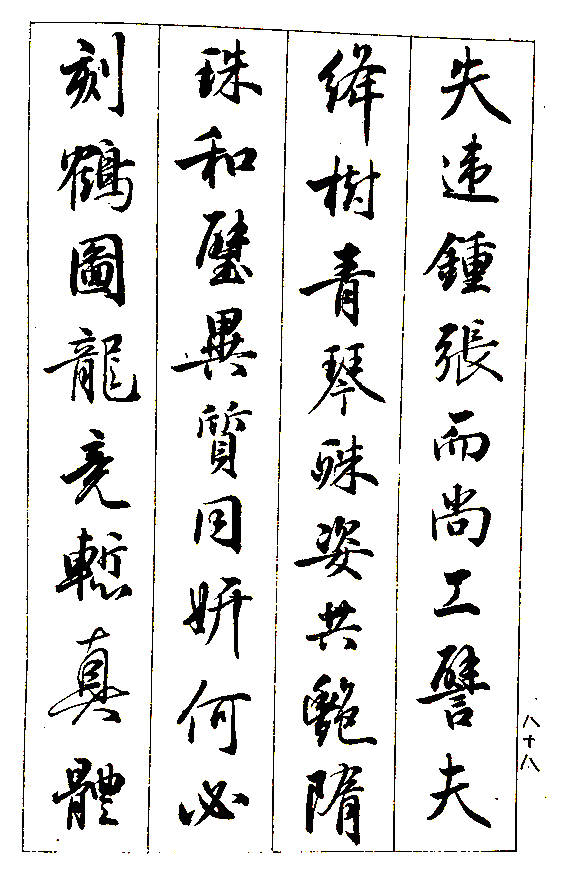 失违鍾張而尚工譬夫
絳樹青琴殊姿共豔隋
珠和璧異質同妍何必
刻鶴圖龍竟慙真體
八十八